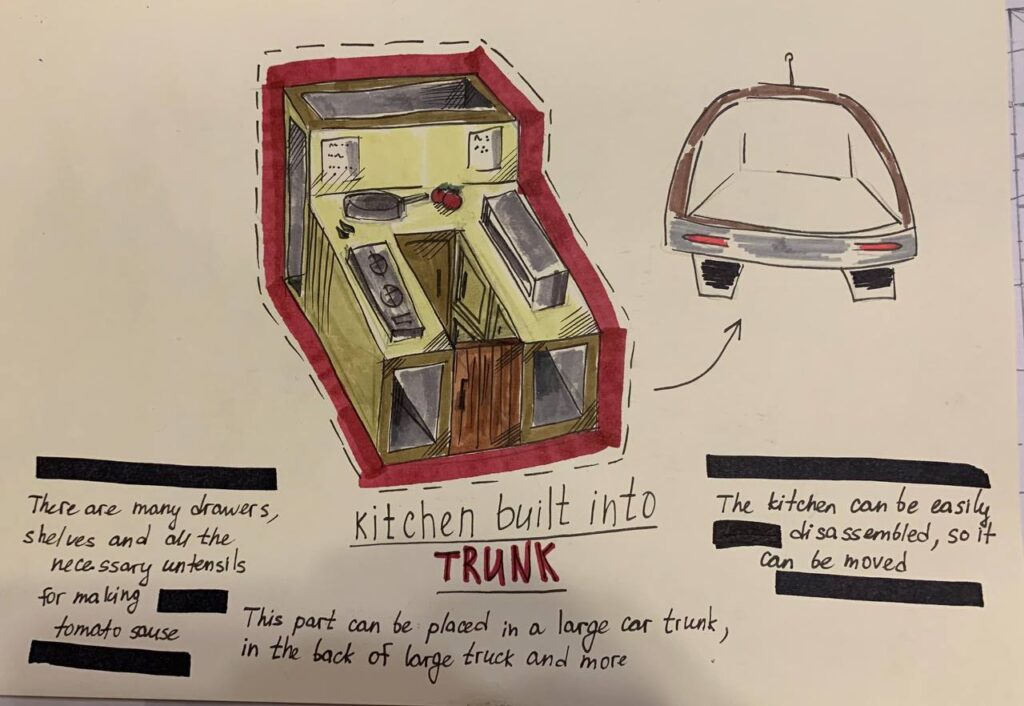 kitchen built into
TRUNK
There are many drawers,
shelves and all the
necessary untensils
for making
tomato sause
This part can be placed in a large car trunk,
in the back of large truck and more
The kitchen can be easily
disassembled, so it
can be moved